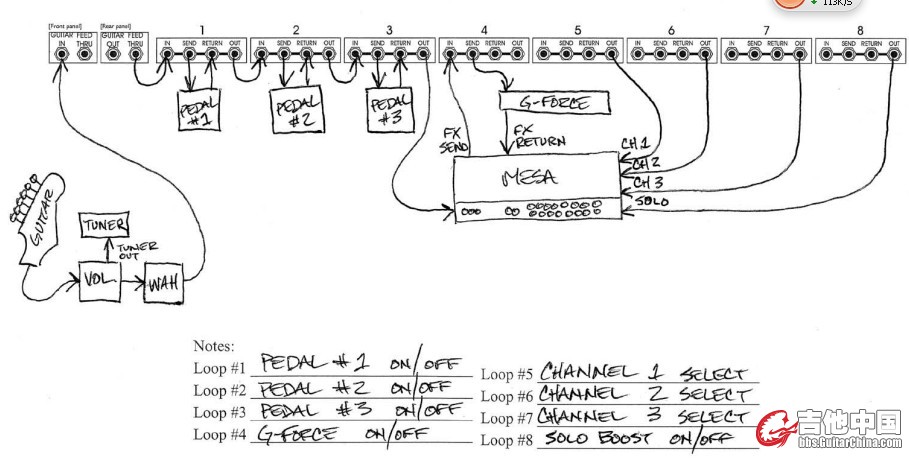 ↓ 113K/S
1 2 3 4 5 6 7 8
[Front panel] [Rear panel]
GUITAR FEED GUITAR FEED
IN THRU OUT THRU
IN SEND RETURN OUT IN SEND RETURN OUT IN SEND RETURN OUT IN SEND RETURN OUT IN SEND RETURN OUT IN SEND RETURN OUT IN SEND RETURN OUT IN SEND RETURN OUT
PEDAL #1
PEDAL #2
PEDAL #3
G-FORCE
FX SEND
FX RETURN
CH 1
CH 2
CH 3
SOLO
MESA
GUITAR
TUNER
TUNER OUT
VOL
WAH
Notes:
Loop #1 PEDAL #1 ON/OFF
Loop #2 PEDAL #2 ON/OFF
Loop #3 PEDAL #3 ON/OFF
Loop #4 G-FORCE ON/OFF
Loop #5 CHANNEL 1 SELECT
Loop #6 CHANNEL 2 SELECT
Loop #7 CHANNEL 3 SELECT
Loop #8 SOLO BOOST ON/OFF
吉他中国
bbs.GuitarChina.com